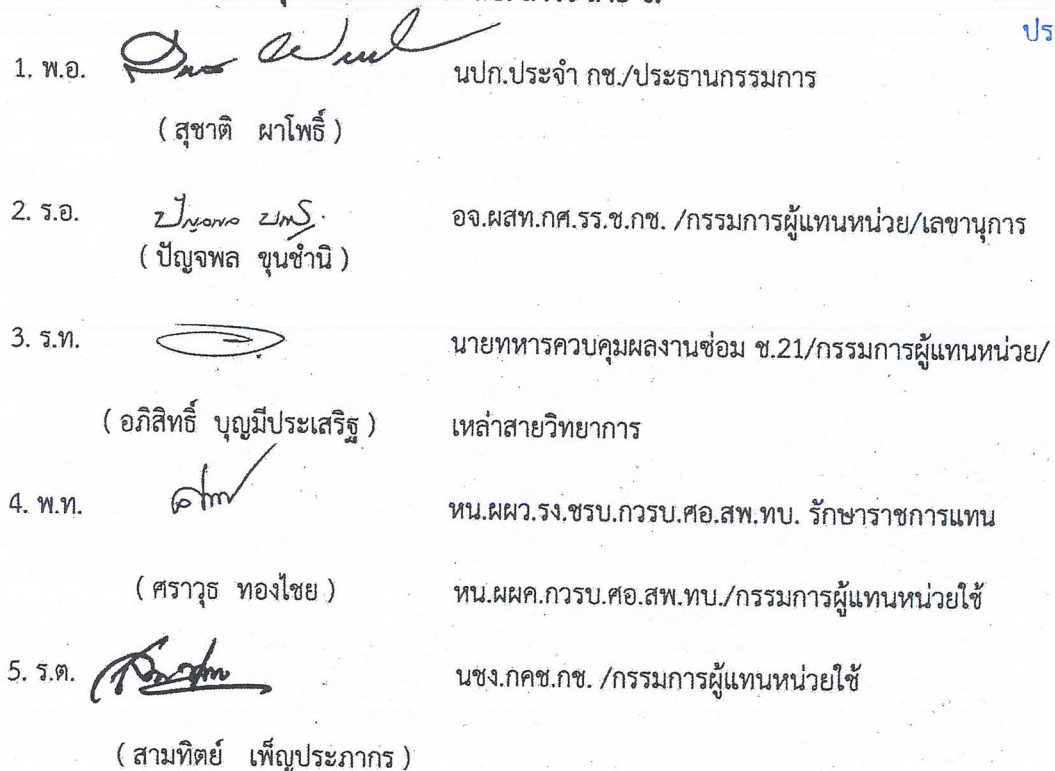 ปร
1. พ.อ. นปก.ประจำ กช./ประธานกรรมการ
( สุชาติ ผาโพธิ์ )
2. ร.อ. อจ.ผสท.กศ.รร.ช.กช. /กรรมการผู้แทนหน่วย/เลขานุการ
( ปัญจพล ขุนชำนิ )
3. ร.ท. นายทหารควบคุมผลงานซ่อม ช.21/กรรมการผู้แทนหน่วย/
( อภิสิทธิ์ บุญมีประเสริฐ ) เหล่าสายวิทยาการ
4. พ.ท. หน.ผผว.รง.ซรบ.กวรบ.ศอ.สพ.ทบ. รักษาราชการแทน
( ศราวุธ ทองไชย ) หน.ผผค.กวรบ.ศอ.สพ.ทบ./กรรมการผู้แทนหน่วยใช้
5. ร.ต. นชง.กคช.กช. /กรรมการผู้แทนหน่วยใช้
( สามทิตย์ เพ็ญประภากร )